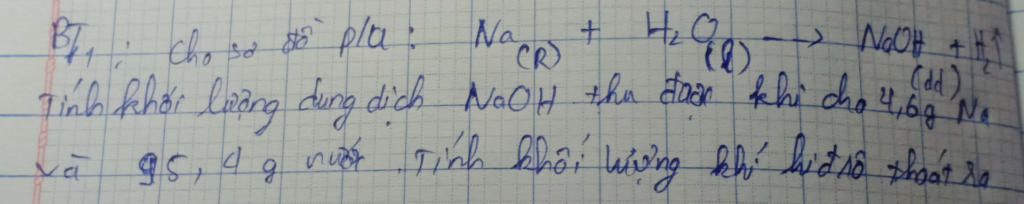 BT1 : Cho sơ đồ p/ư : Na (R) + H2O (l) → NaOH (dd) + H2↑
Tính khối lượng dung dịch NaOH thu được khi cho 4,6g Na
và 95,4 g nước. Tính khối lượng khí hiđrô thoát ra